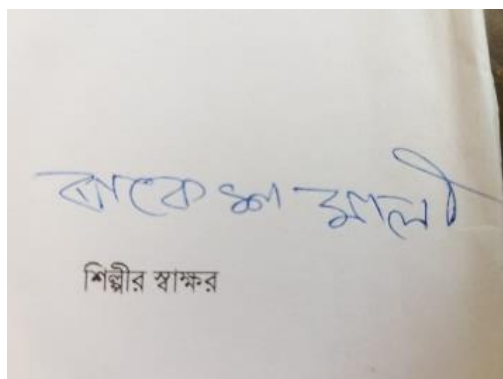 রাকেশ মালী
শিল্পীর স্বাক্ষর